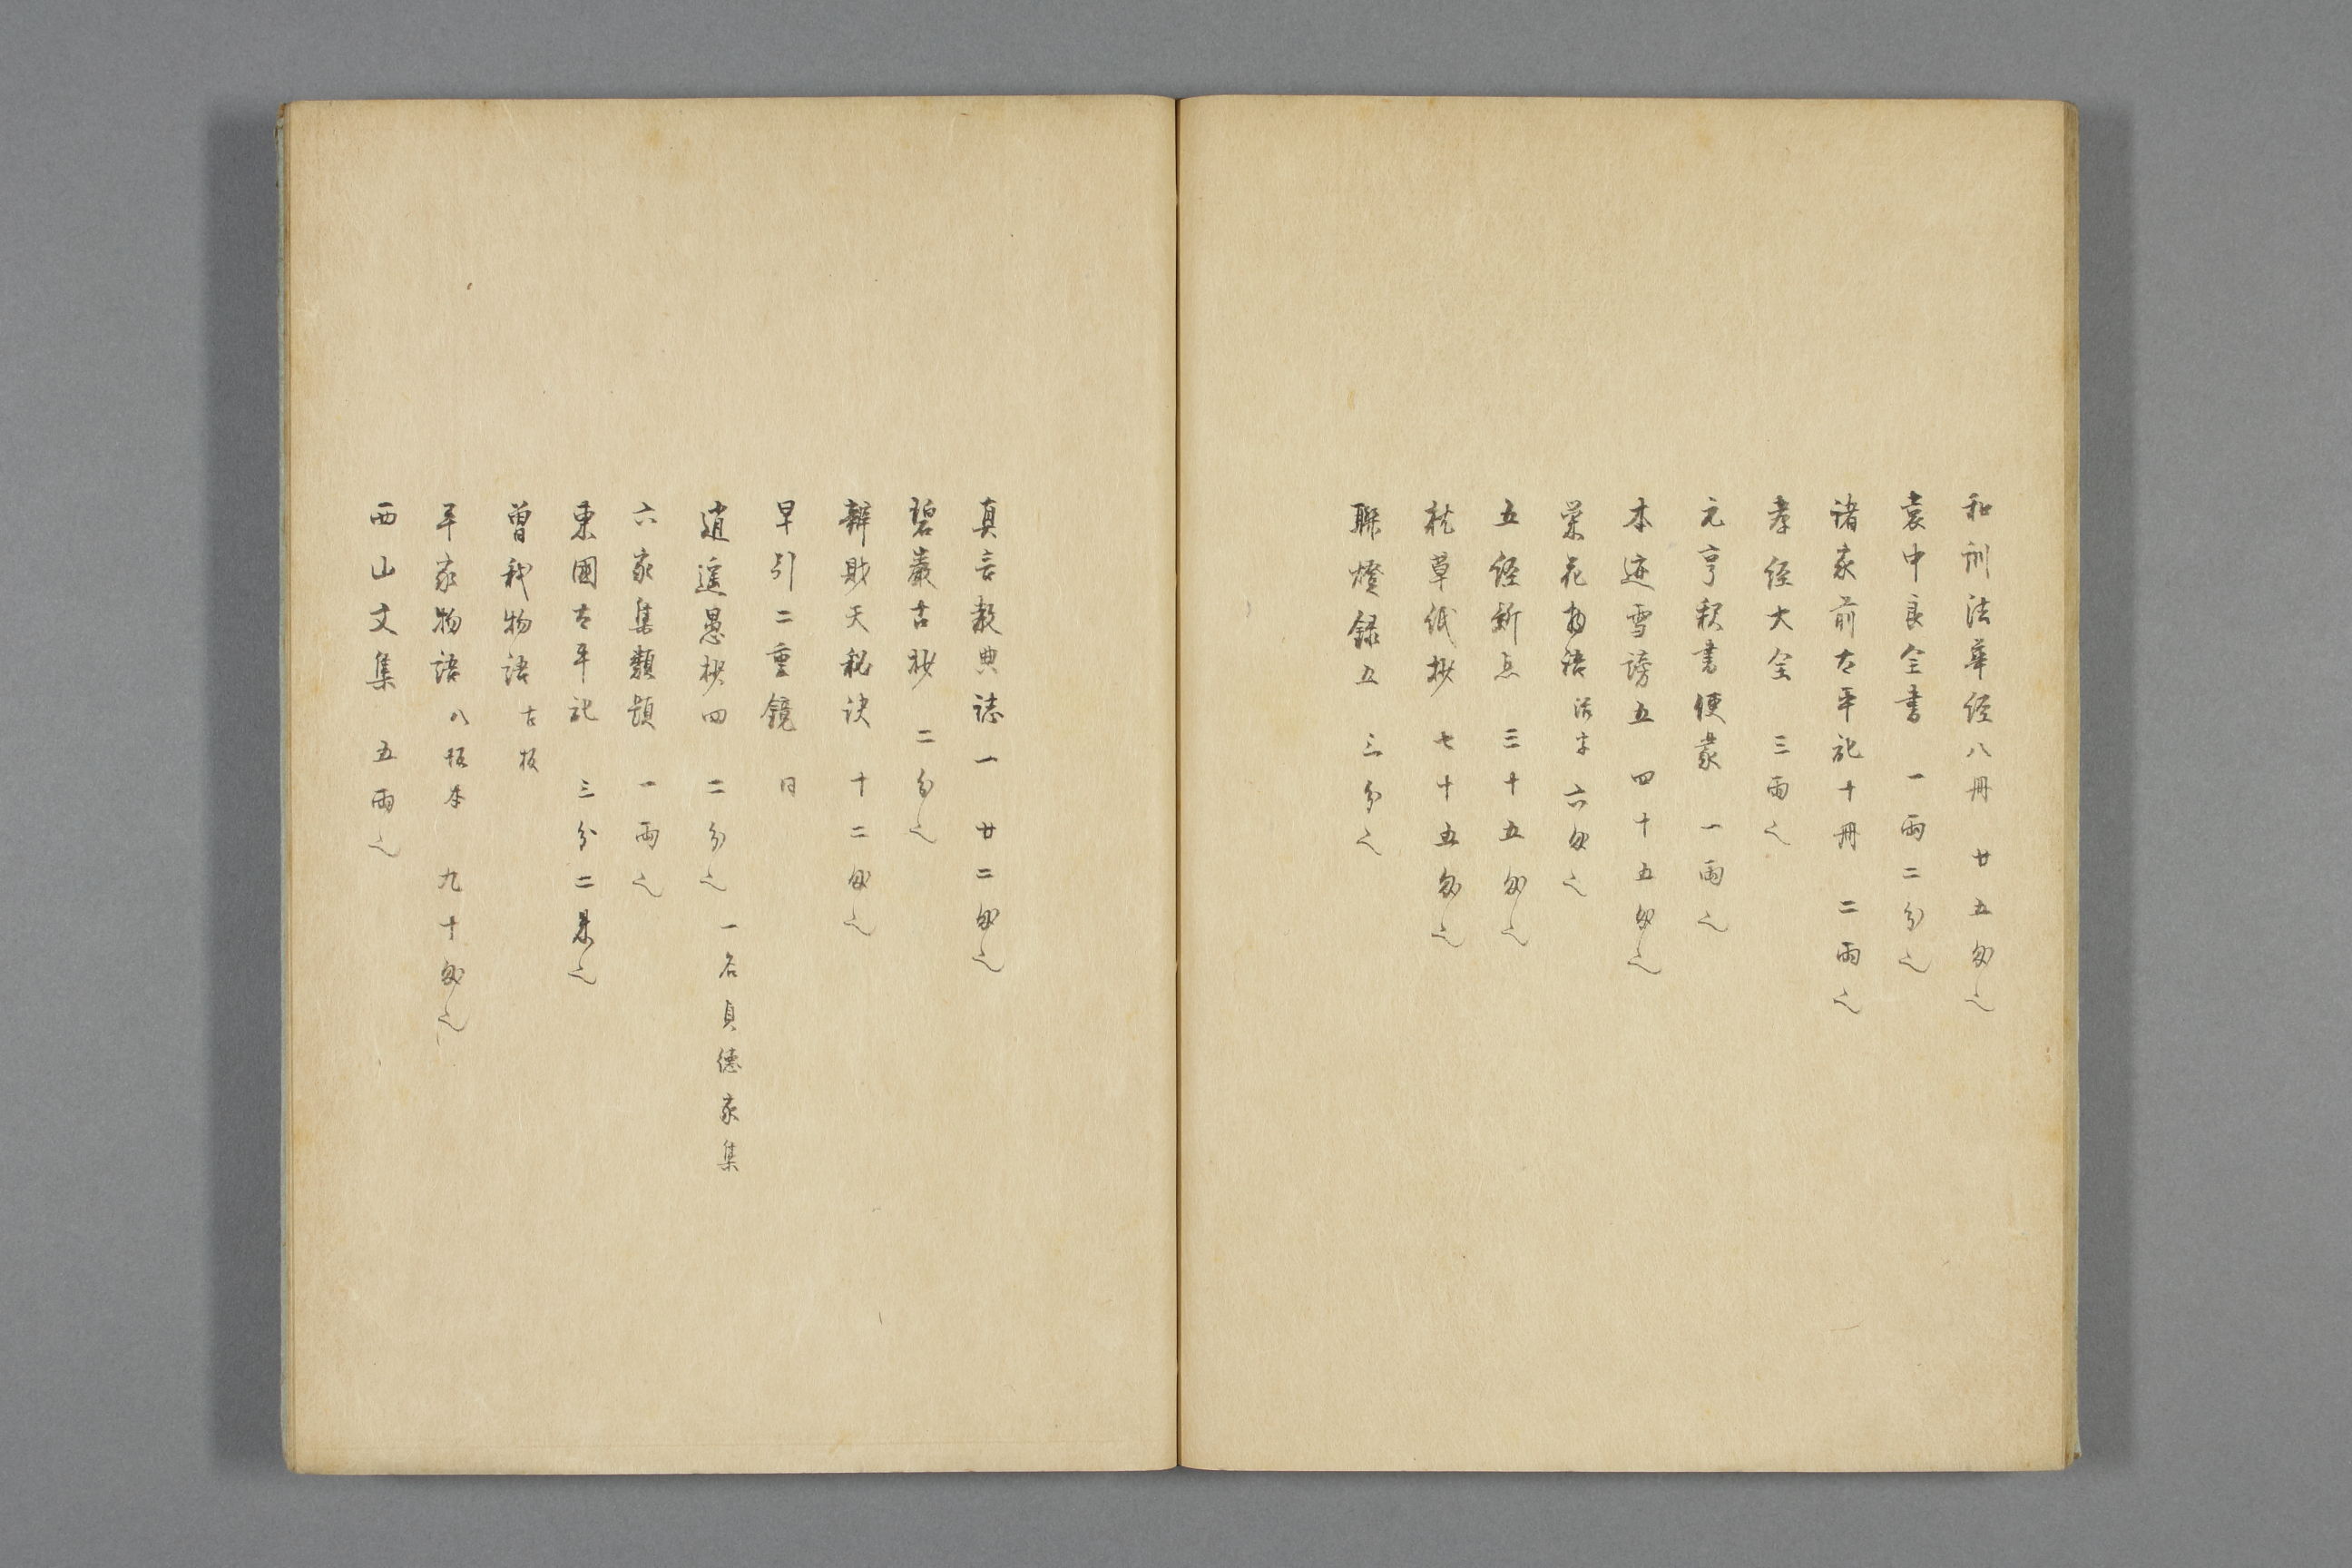 和訓法華経八冊 廿五匁之
袁中良全書 一両二分之
諸家前太平記十冊 二両之
孝経大全 三両之
元亨釈書便蒙 一両之
本迹雪謗五 四十五匁之
栄花物語 活字 六匁之
五経新点 三十五匁之
枕草紙抄 七十五匁之
聯燈録五 三分之
真言教典誌一 廿二匁之
碧巌古抄 二分之
辨財天秘訣 十二匁之
早引二重鏡 同
逍遥愚抄四 二分之 一名貞徳家集
六家集類題 一両之
東國太平記 三分二朱之
曽我物語 古板
平家物語 八坂本 九十匁之
西山文集 五両之